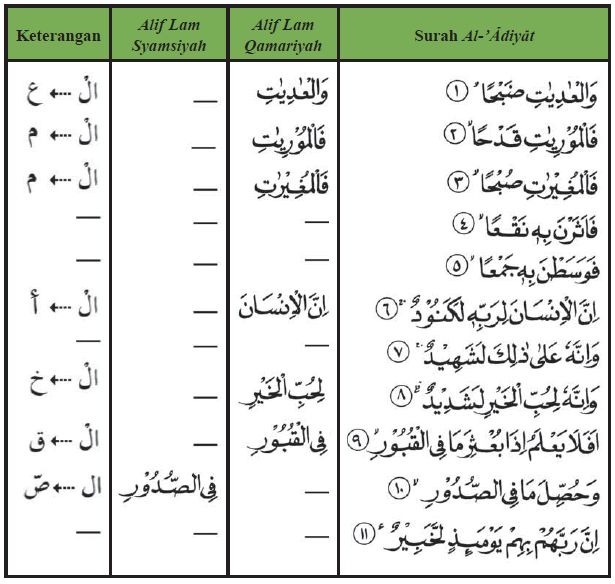 Keterangan Alif Lam Syamsiyah Alif Lam Qamariyah Surah Al-’Ādiyāt
الْ ⇠ ع — وَالْعٰدِيٰتِ وَالْعٰدِيٰتِ ضَبْحًاۙ ١
الْ ⇠ م — فَالْمُوْرِيٰتِ فَالْمُوْرِيٰتِ قَدْحًاۙ ٢
الْ ⇠ م — فَالْمُغِيْرٰتِ فَالْمُغِيْرٰتِ صُبْحًاۙ ٣
— — — فَاَثَرْنَ بِهٖ نَقْعًاۙ ٤
— — — فَوَسَطْنَ بِهٖ جَمْعًاۙ ٥
الْ ⇠ أ — اِنَّ الْاِنْسَانَ اِنَّ الْاِنْسَانَ لِرَبِّهٖ لَكَنُوْدٌۚ ٦
— — — وَاِنَّهٗ عَلٰى ذٰلِكَ لَشَهِيْدٌۚ ٧
الْ ⇠ خ — لِحُبِّ الْخَيْرِ وَاِنَّهٗ لِحُبِّ الْخَيْرِ لَشَدِيْدٌۗ ٨
الْ ⇠ ق — فِى الْقُبُوْرِ اَفَلَا يَعْلَمُ اِذَا بُعْثِرَ مَا فِى الْقُبُوْرِۙ ٩
ال ⇠ صّ فِى الصُّدُوْرِ — وَحُصِّلَ مَا فِى الصُّدُوْرِۙ ١٠
— — — اِنَّ رَبَّهُمْ بِهِمْ يَوْمَىِٕذٍ لَّخَبِيْرٌ ࣖ ١١